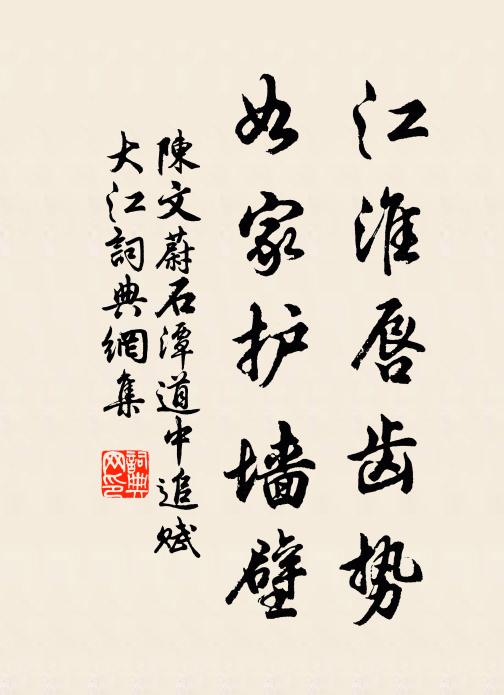 江淮唇齿势
如家护墙壁
陳文蔚石潭道中追赋
大江詞典網集
詞典网印